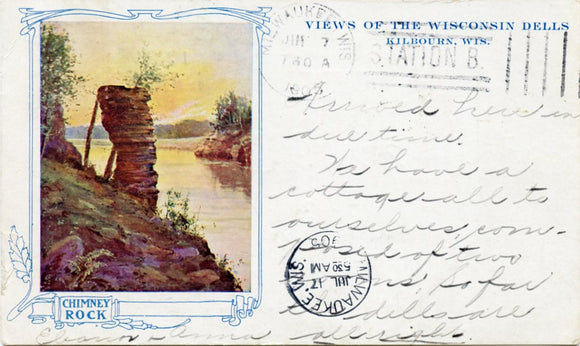 VIEWS OF THE WISCONSIN DELLS
KILBOURN, WIS.
MILWAUKEE WIS
JUL 7
730 A
STATION B.
Arrived here in
due time.
We have a
cottage all to
ourselves, com-
of two
So far
dells are
all right.
MILWAUKEE WIS
JUL 17
530 AM
CHIMNEY
ROCK
Eleanor & Anna